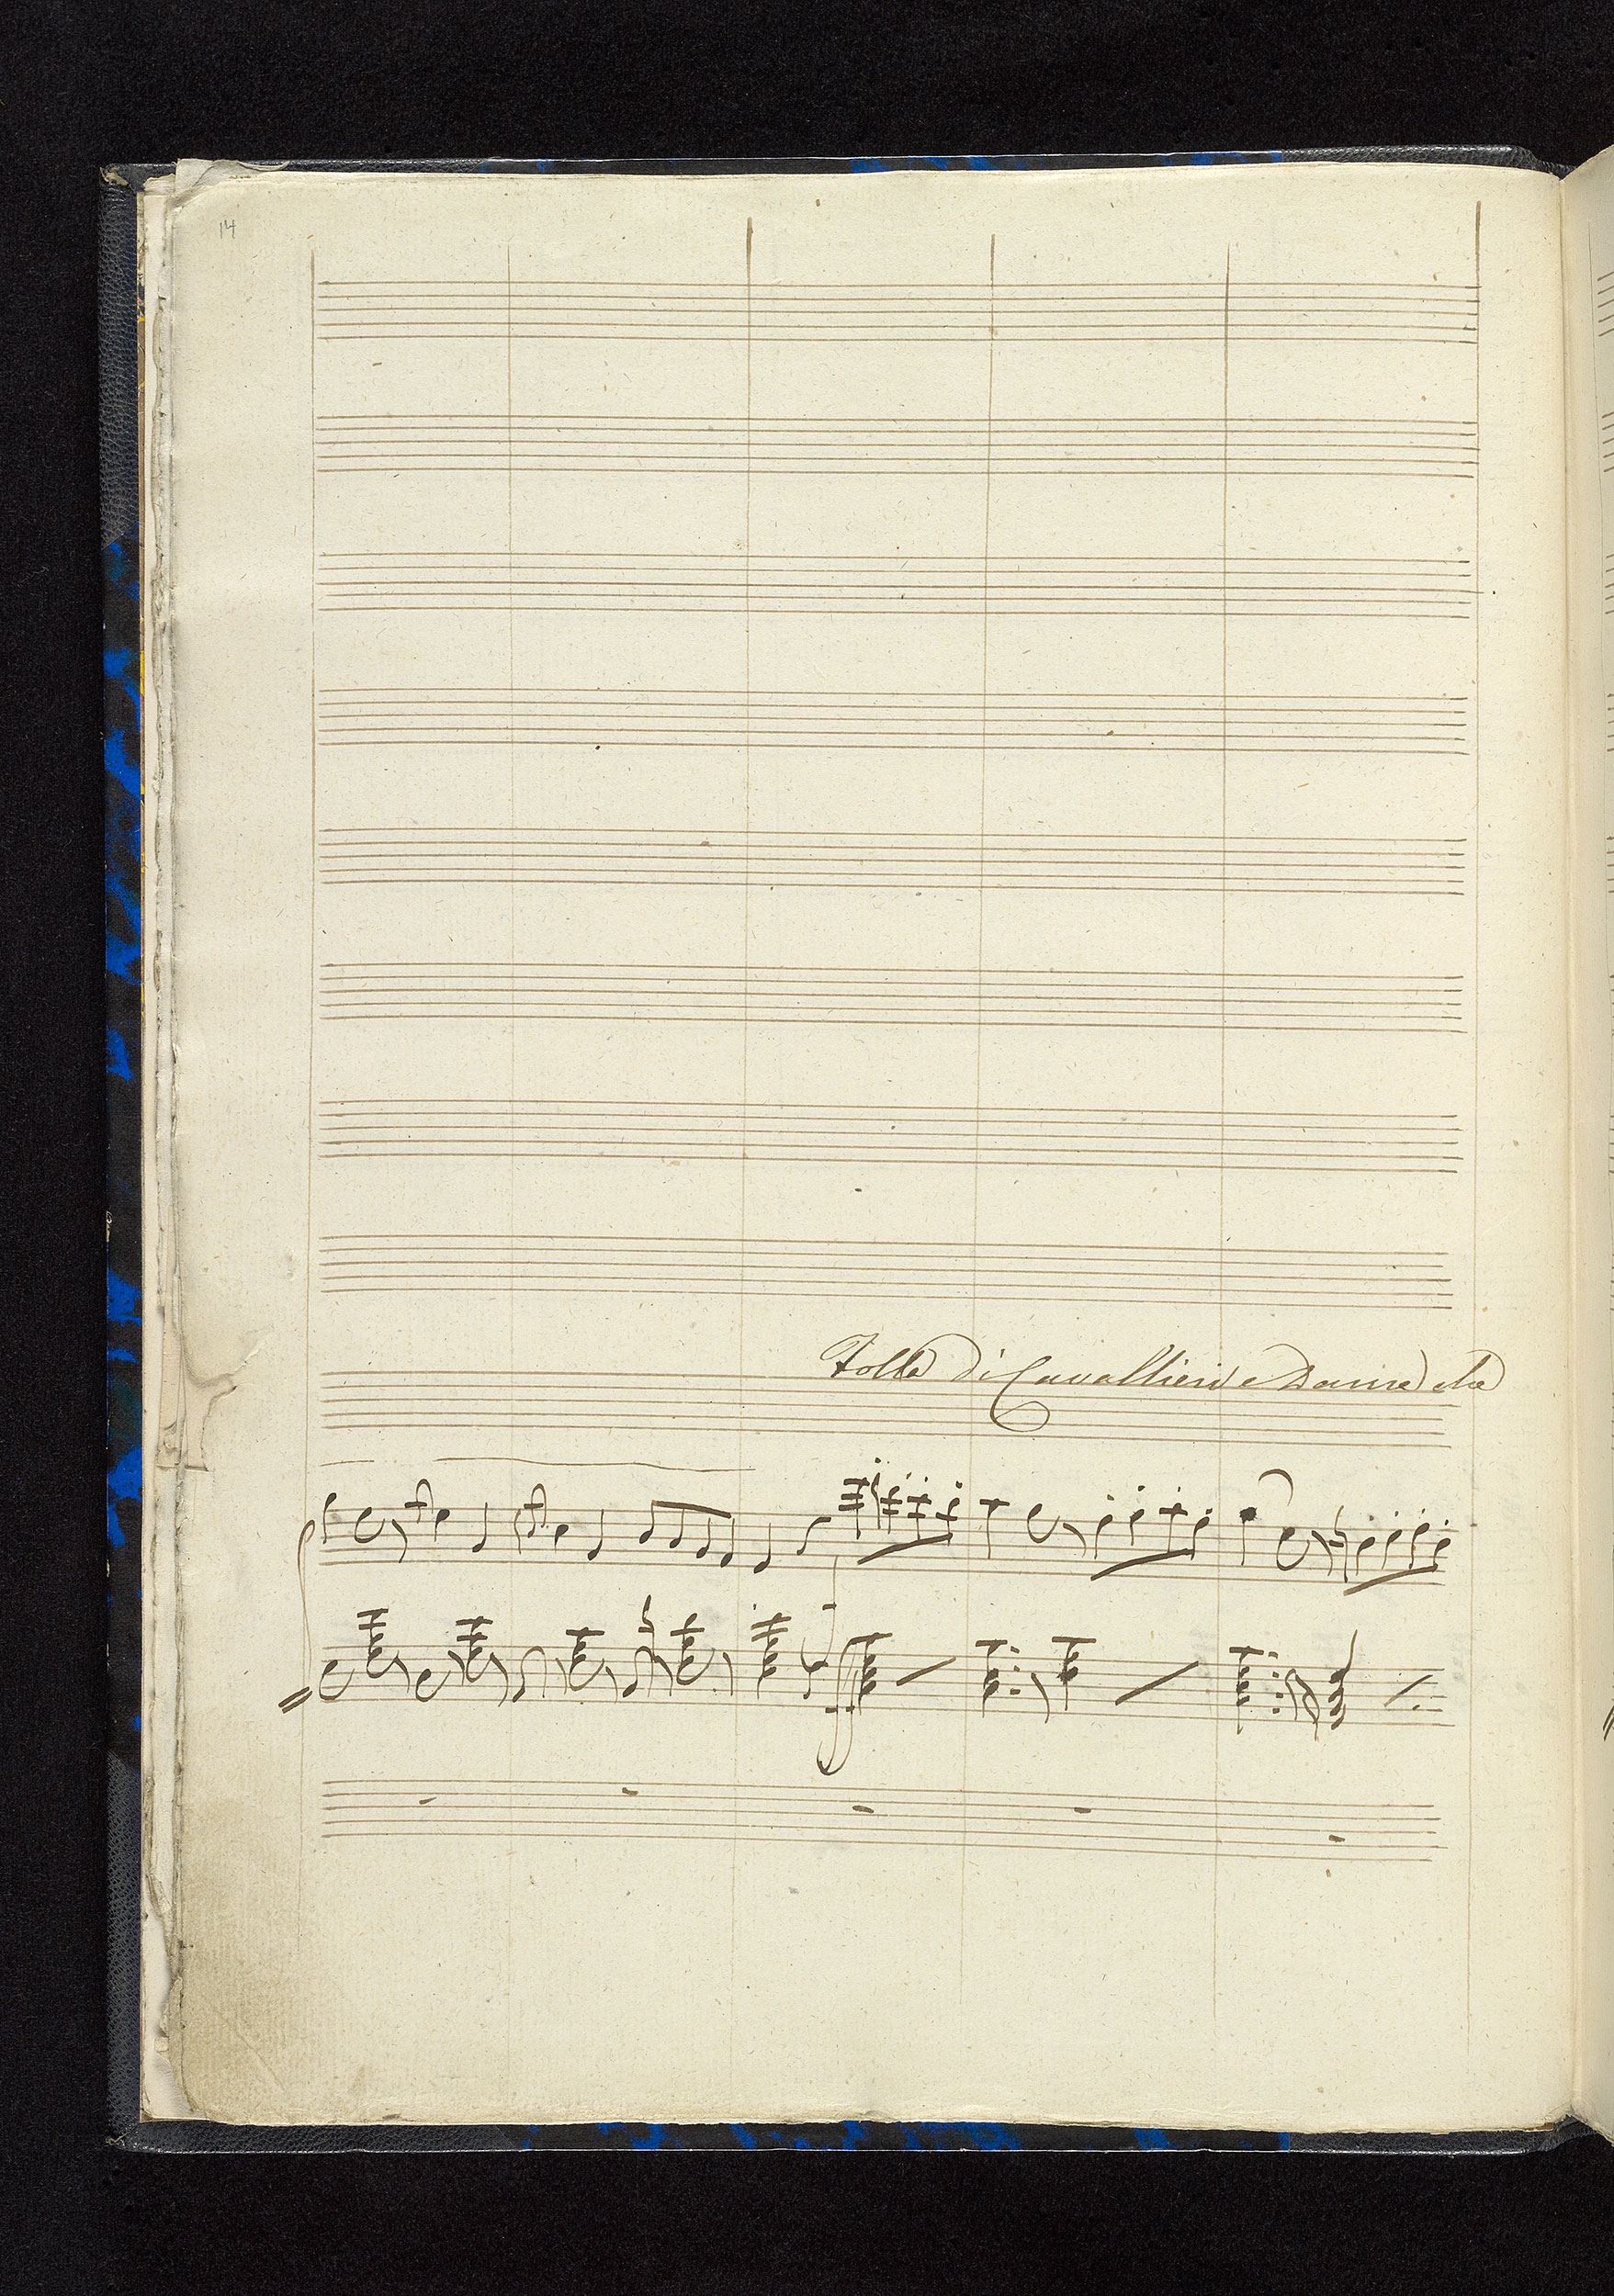 14
Folla di Cavallieri e Dame che